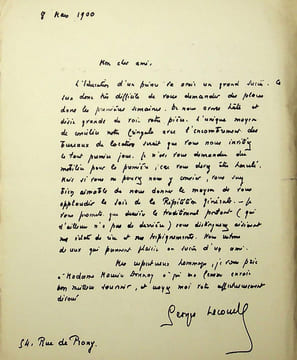 8 Mars 1900
Mon cher ami,
L'éducation d'un prince va avoir un grand succès. Ce
sera donc très difficile de vous demander des places
dans les premières semaines. Et nous avons hâte et
désir grands de voir votre pièce. L'unique moyen
de concilier notre fringale avec l'encombrement des
bureaux de location serait que vous nous invitiez
le tout premier jour. Je n'ose vous demander du
matinée pour la première, car vous devez être
Mais si vous ne pouvez nous y convier, vous seriez
bien aimable de nous donner le moyen de vous
applaudir le soir de la Répétition Générale. - Je
vous promets que derrière le traditionnel portant (qui
d'ailleurs n'a pas de derrière) vous distinguerez aisément
nos éclats de rire et nos trépignements. Nous sommes
de ceux qui prennent plaisir au succès d'un ami.
Mes respectueux hommages, je vous prie
à Madame Maurice Donnay à qui ma femme envoie
son meilleur souvenir, et croyez moi votre affectueusement
dévoué
Georges Lecomte
54. Rue de Prony.